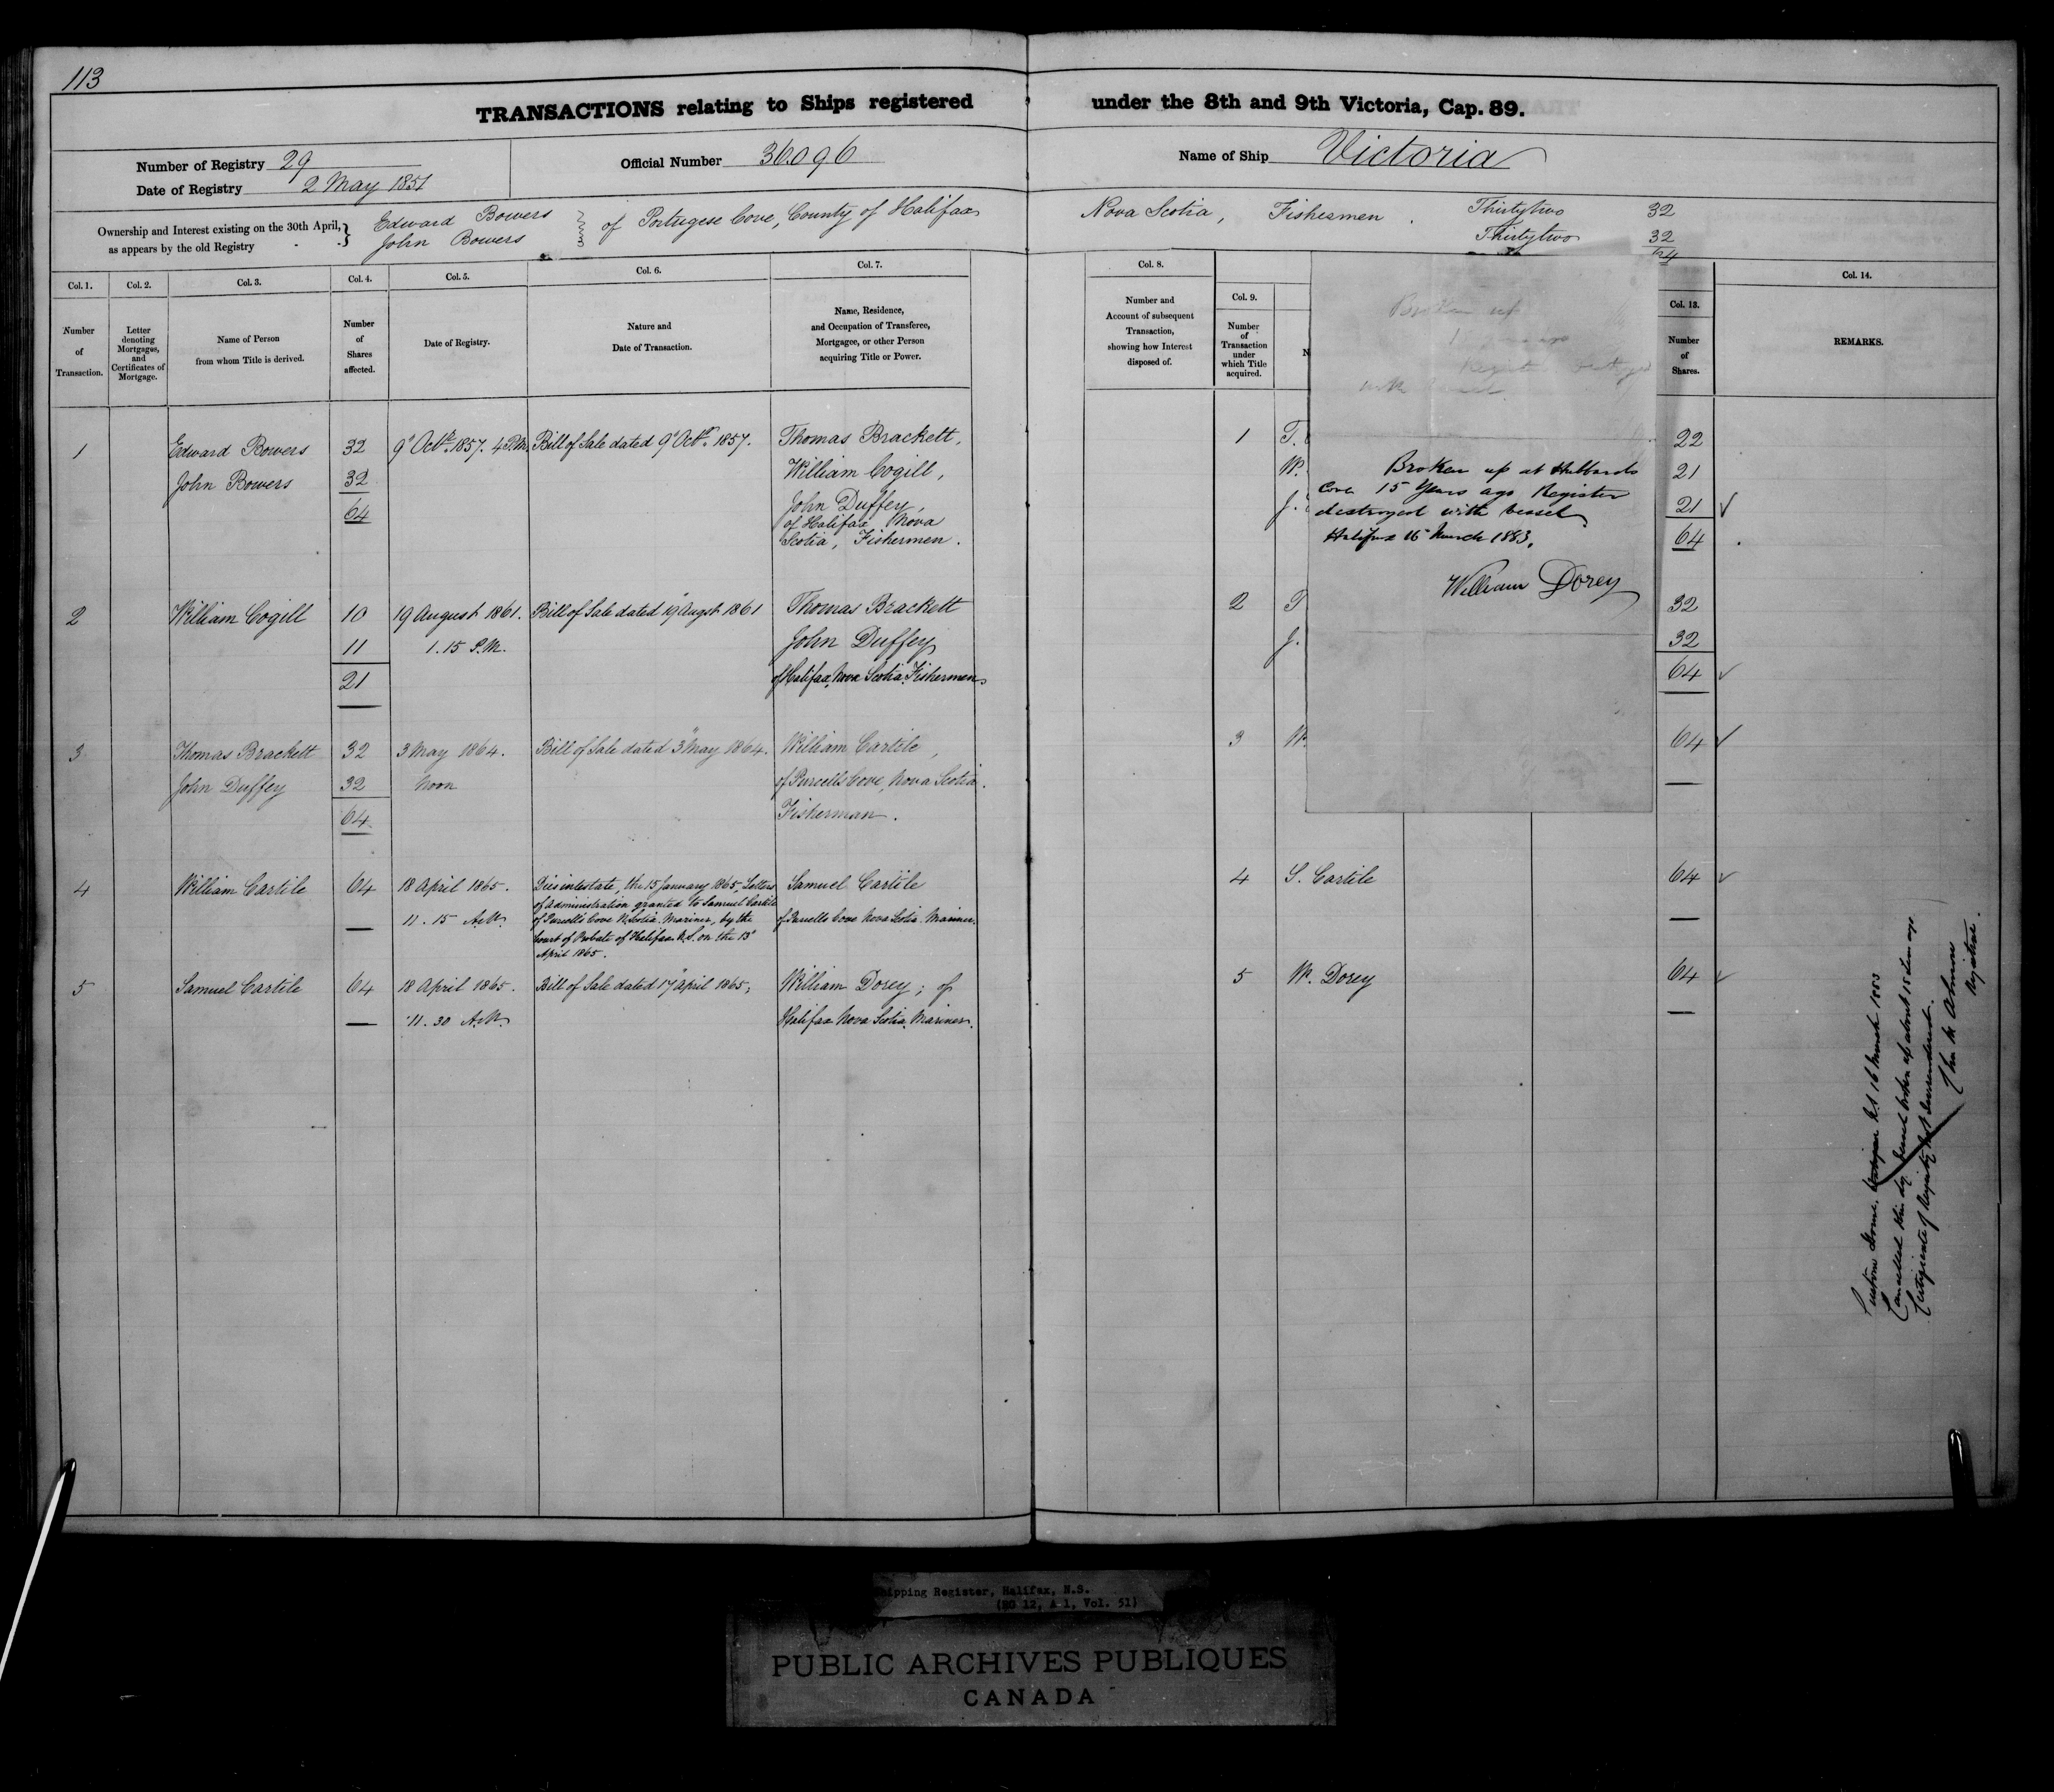 113
TRANSACTIONS relating to Ships registered under the 8th and 9th Victoria, Cap. 89.
Number of Registry 29
Date of Registry 2 May 1851
Official Number 36.096
Name of Ship Victoria
Ownership and Interest existing on the 30th April, as appears by the old Registry
Edward Bowers
John Bowers
of Portugese Cove, County of Halifax
Nova Scotia, Fishermen.
Thirtytwo 32
Thirtytwo 32
64
Col. 1. Col. 2. Col. 3. Col. 4. Col. 5. Col. 6. Col. 7.
Number of Transaction.
Letter denoting Mortgages, and Certificates of Mortgage.
Name of Person from whom Title is derived.
Number of Shares affected.
Date of Registry.
Nature and Date of Transaction.
Name, Residence, and Occupation of Transferee, Mortgagee, or other Person acquiring Title or Power.
1 Edward Bowers 32 9" Octr. 1857. 4 P.M. Bill of Sale dated 9" Octr. 1857. Thomas Brackett,
John Bowers 32 William Cogill,
64 John Duffey,
of Halifax Nova
Scotia, Fishermen.
2 William Cogill 10 19 August 1861. Bill of Sale dated 19" Augst 1861 Thomas Brackett
11 1.15 P.M. John Duffey
21 of Halifax, Nova Scotia, Fishermen
3 Thomas Brackett 32 3 May 1864. Bill of Sale dated 3" May 1864. William Cartile,
John Duffey 32 Noon of Purcells Cove, Nova Scotia.
64 Fisherman.
4 William Cartile 64 18 April 1865. Dies intestate, the 15 January 1865, Letters Samuel Cartile
of Administration granted to Samuel Cartile
11.15 A.M. of Purcell's Cove N. Scotia. Mariner, by the of Purcells Cove Nova Scotia. Mariner.
Court of Probate of Halifax N.S. on the 13"
April 1865.
5 Samuel Cartile 64 18 April 1865. Bill of Sale dated 17" April 1865, William Dorey; of
11.30 A.M. Halifax Nova Scotia. Mariner.
Col. 8. Col. 9. Col. 13. Col. 14.
Number and Account of subsequent Transaction, showing how Interest disposed of.
Number of Transaction under which Title acquired.
N
Number of Shares.
REMARKS.
1 T. 22
W. 21
J. 21
64
2 T 32
J. 32
64
3 W. 64
4 S. Cartile 64
5 W. Dorey 64
Broken up
Broken up at Hubbards
Cove 15 Years ago Register
destroyed with vessel
Halifax 16 March 1883.
William Dorey
Custom House. Halifax N.S 16 March 1883
Cancelled this dy. Vessel broken up about 15 years ago
Certificate of Registry not surrendered.
Registrar.
Shipping Register, Halifax, N.S.
(RG 12, A 1, Vol. 51)
PUBLIC ARCHIVES PUBLIQUES
CANADA